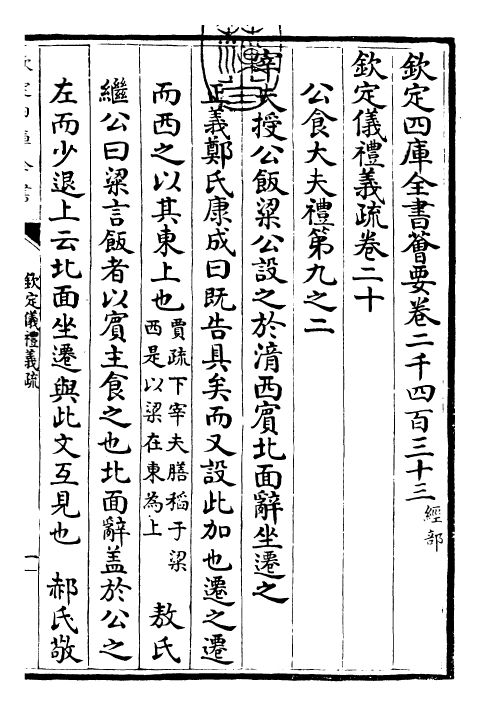 欽定四庫全書薈要卷二千四百三十三經部
欽定儀禮義疏卷二十
公食大夫禮第九之二
宰夫授公飯粱公設之於湇西賓北面辭坐遷之
正義鄭氏康成曰既告具矣而又設此加也遷之遷
而西之以其東上也
賈疏下宰夫膳稻于粱
西是以粱在東為上
敖氏
繼公曰粱言飯者以賓主食之也北面辭蓋於公之
左而少退上云北面坐遷與此文互見也 郝氏敬
欽定儀禮義疏
一